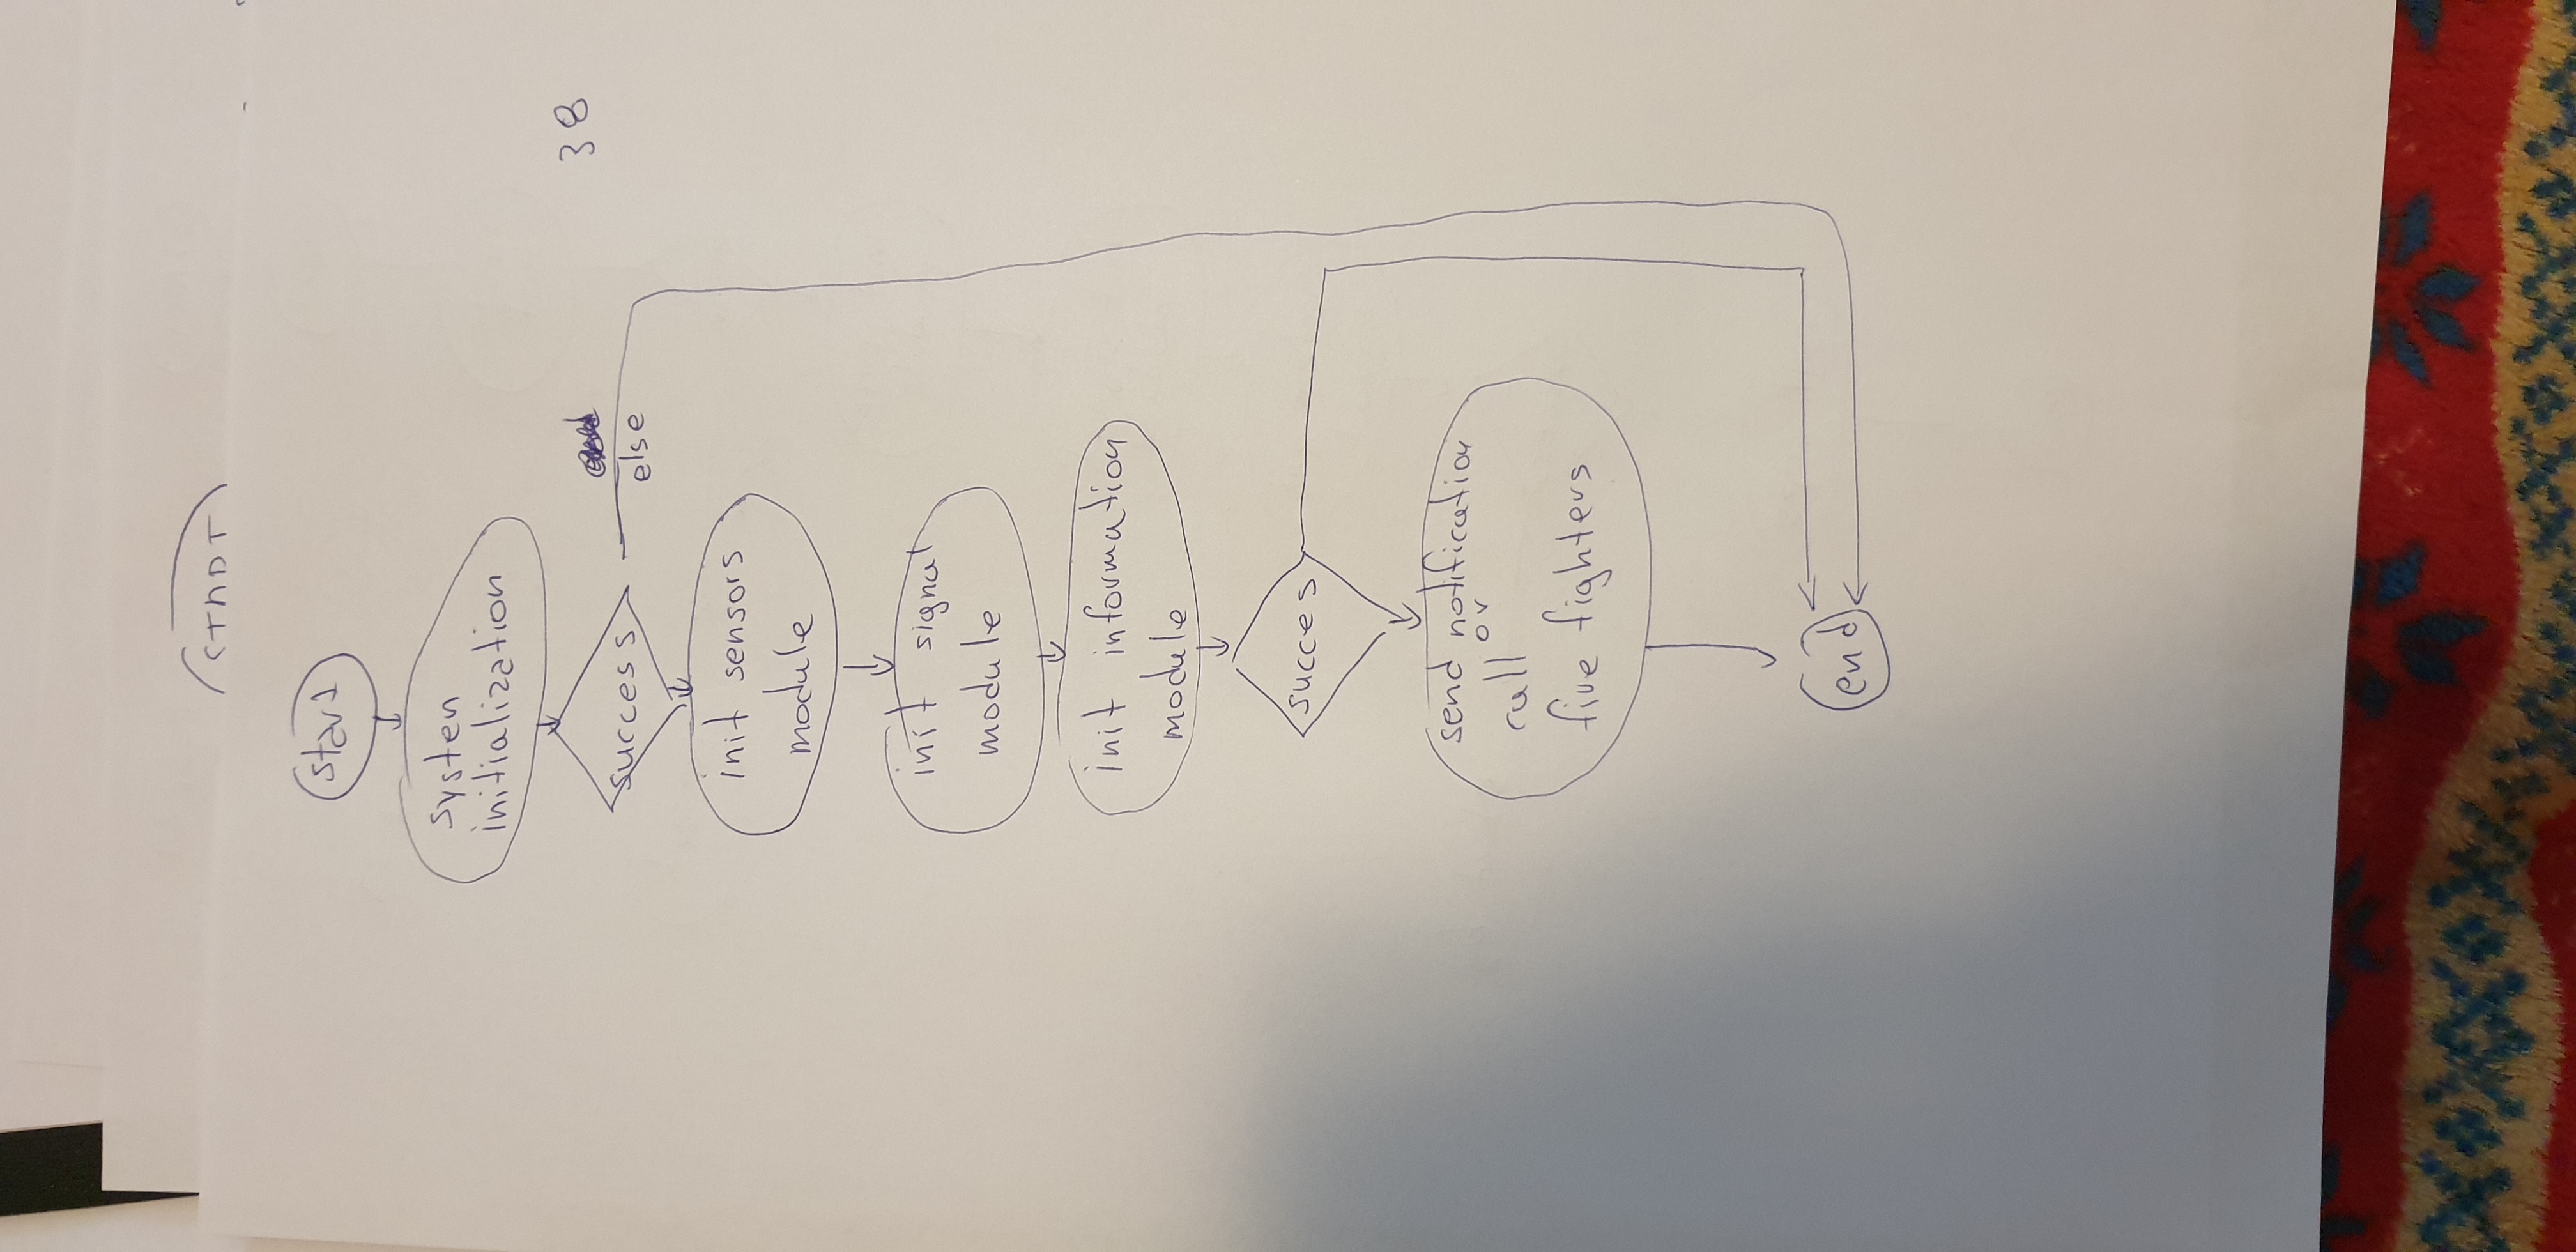 start
systen
initialization
success
else
38
init sensors
module
init signal
module
init information
module
succes
send notification
or
call
fire fighters
end